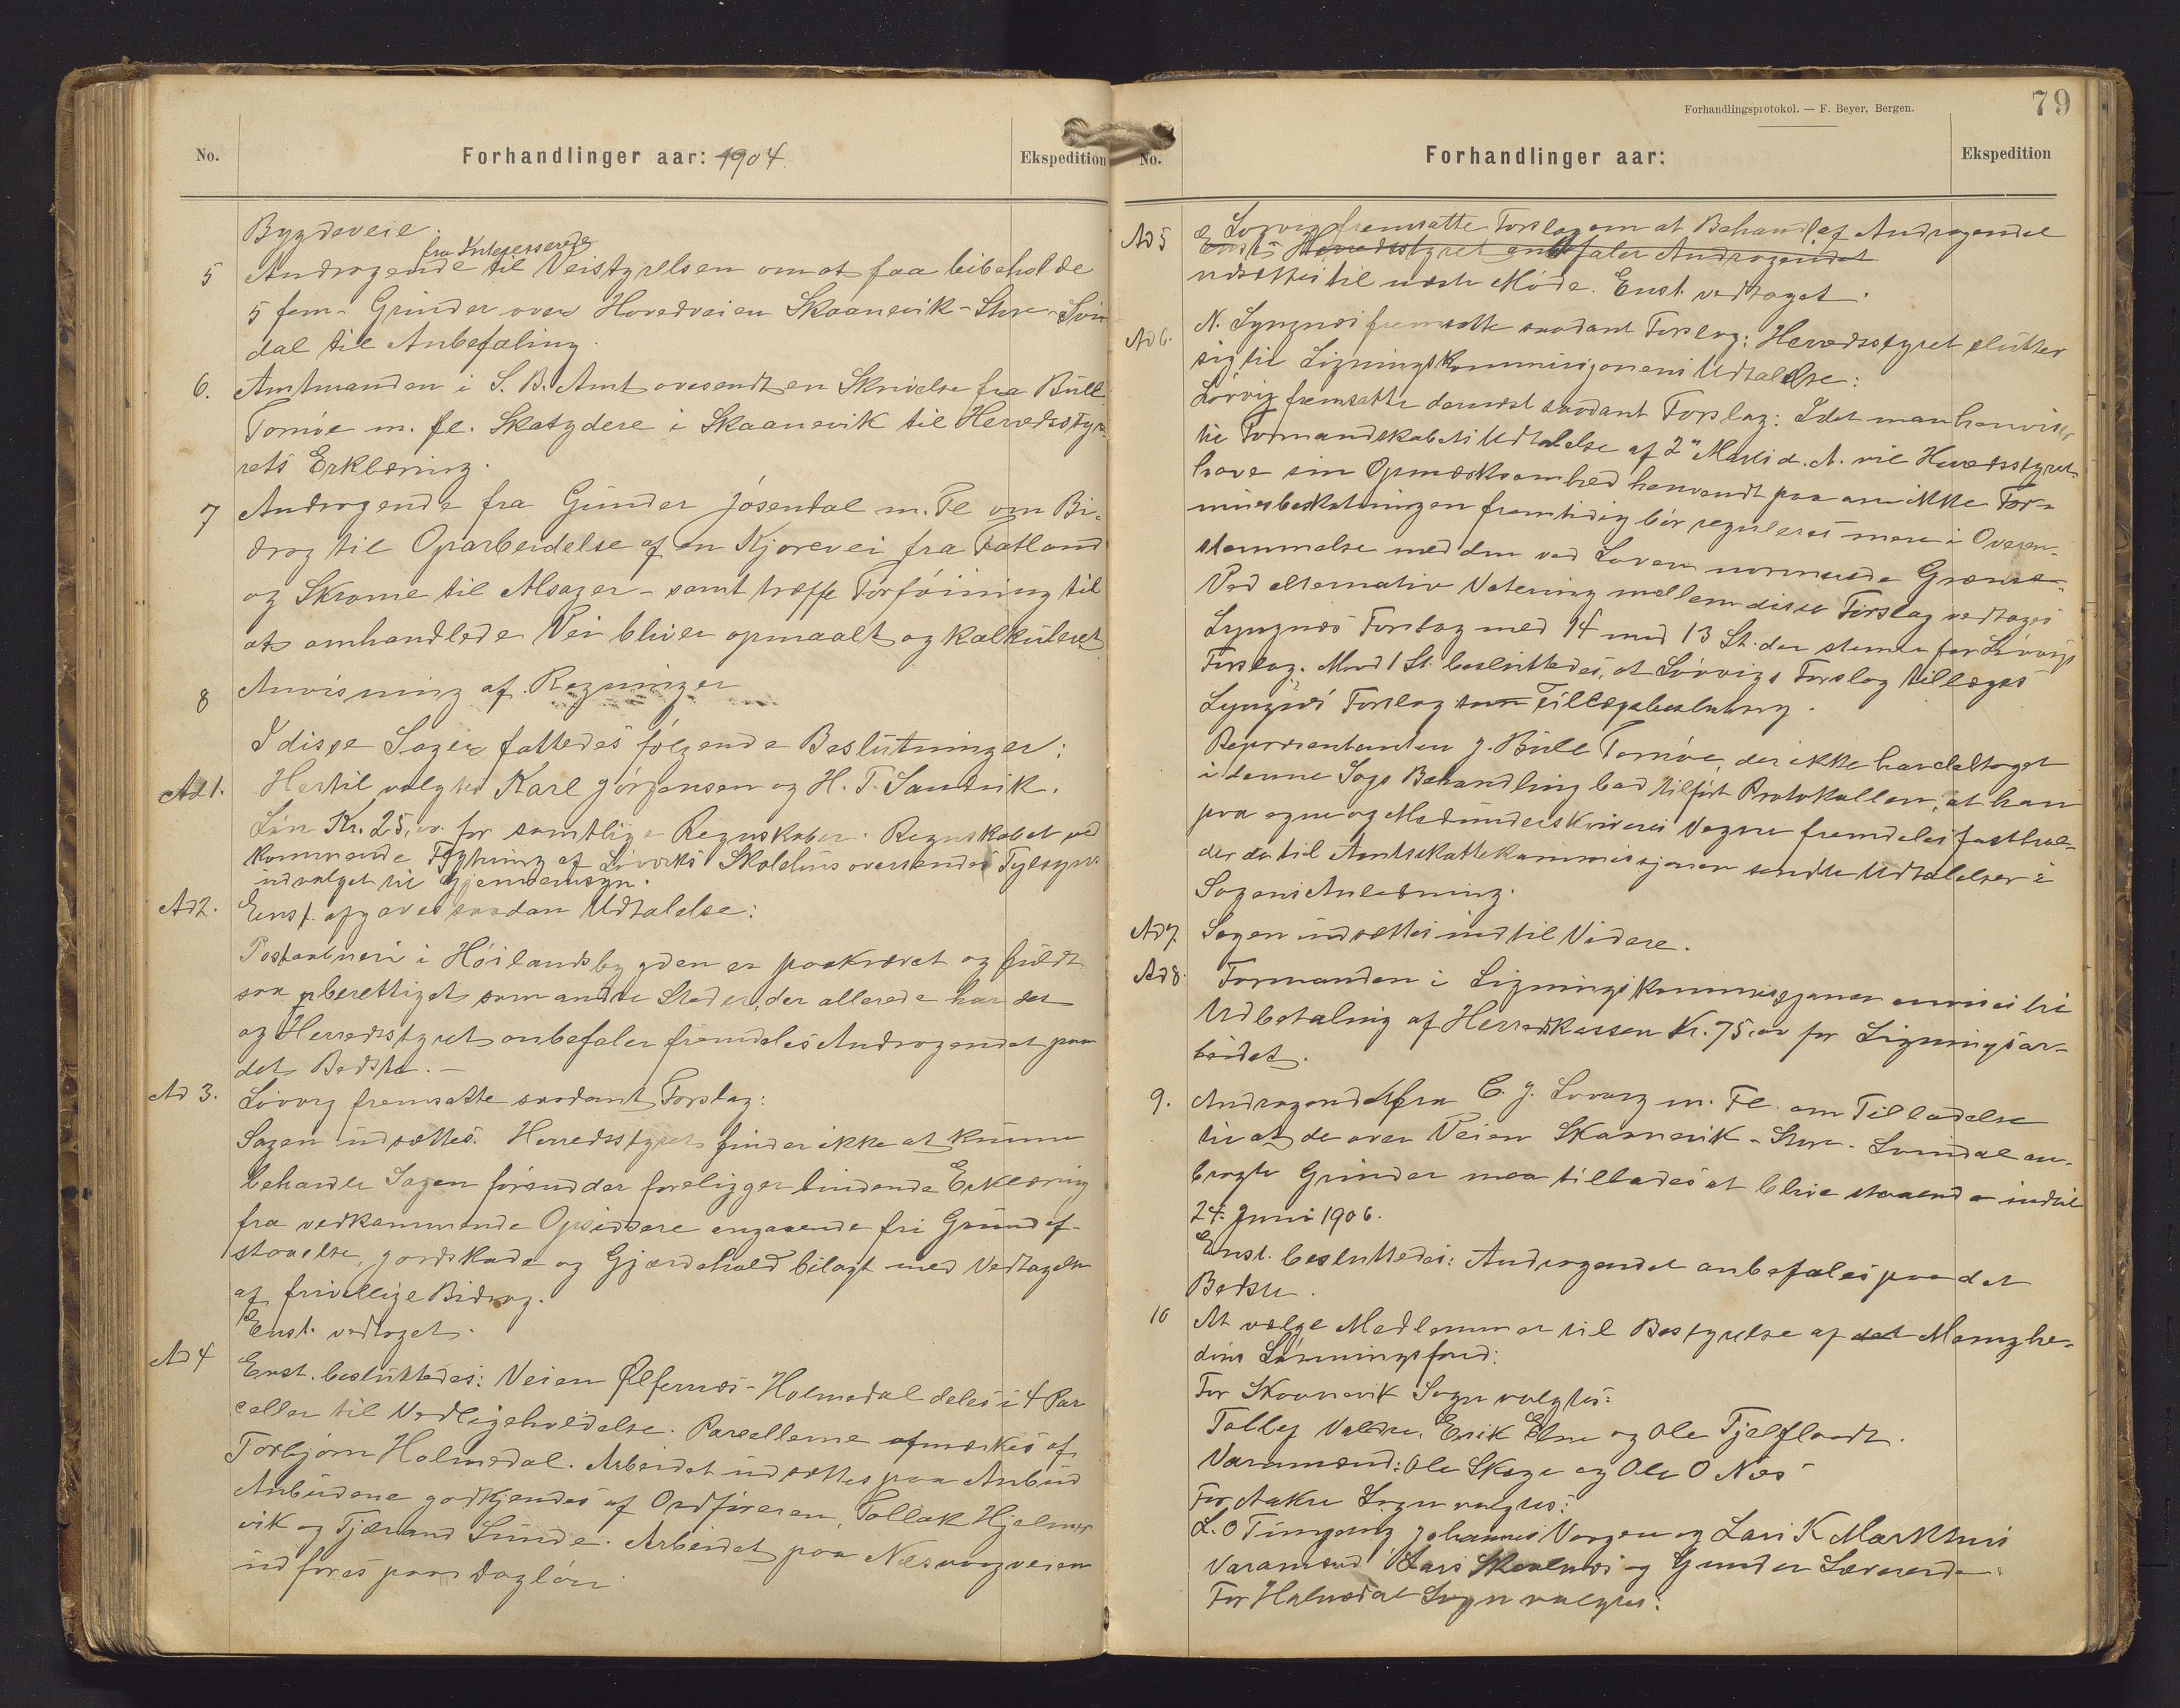 No. Forhandlinger aar: 1904 Ekspedition
Bygdeveie.
fra Interesserede
5 Andragende til Veistyrelsen om at faa bibeholde
5 fem- Grinder over Hovedveien Skaanevik-Stere-Svin
dal til Anbefaling.
6. Amtmanden i S. B. Amt oversendt en Skrivelse fra Büll
Tornöe m. fl. Skatydere i Skaanevik til Herredssty-
rets Erklæring.
7 Andragende fra Günder Jösendal m. Fl om Bi-
drag til Oparbeidelse af en Kjörevei fra Fatland
og Skrome til Alsager - samt træffe Forföining til
at omhandlede Vei bliver opmaalt og kalkuleret
8 Anvisning af Regninger
I disse Sager fattedes følgende Beslutninger:
Ad 1. Hertil valgtes Karl Jörgensen og H. T. Sandvik.
Lön Kr. 25,00 for samtlige Regnskaber. Regnskabet ved
kommende Bygning af Skolehus oversendes Tilsyns-
udvalget til Gjennemsyn.
Ad 2. Enst. afgaves saadan Udtalelse:
Postaabneri i Höilandsbygden er paakrævet og fuldt
saa berettiget som andre Steder, der allerede har det
og Herredsstyret anbefaler fremdeles Andragendet paa
det Bedste. –
Ad 3. Lövvig fremsatte saadant Forslag:
Sagen udsættes. Herredsstyret finder ikke at kunne
behandle Sagen förend der foreligger bindende Erklæring
fra vedkommende Opsiddere angaaende fri Grundaf-
staaelse, jordskade og Gjærdehold bilagt med Vedtagelse
af frivillige Bidrag.
Enst. vedtaget.
Ad 4 Enst. besluttedes: Veien Ølfernæs-Holmedal deles i 4 Par
celler til Vedligeholdelse. Parcellerne afmærkes af
Torbjörn Holmedal. Arbeidet udsættes paa Anbud
Anbudene godkjendes af Ordföreren, Tollak Hjelmer
vik og Tjærand Sunde. Arbeidet paa Næsvaagveien
udföres paa Daglön.
Forhandlingsprotokol. — F. Beyer, Bergen.
79
No. Forhandlinger aar: Ekspedition
Ad 5 Lövvig fremsatte Forslag om at Behandl. af Andragendet
Enst. Herredsstyret anbefaler Andragendet
udsættes til næste Möde. Enst. vedtaget.
Ad 6. N. Lyngnæs fremsatte saadant Forslag: Herredsstyret slutter
sig til Ligningskommissjonens Udtalelse:
Lövvig fremsatte dernæst saadant Forslag: Idet man henviser
til Formandskabets Udtalelse af 2den Marts d. A. vil Herredsstyret
have sin Opmerksomhed henvendt paa om ikke For-
muesbeskatningen fremtidig bör reguleres mere i Overen-
stemmelse med den ved Loven normerede Grænse.
Ved alternativ Votering mellem disse Forslag vedtoges
Lyngnæs Forslag med 14 mod 13 St. der stemte for Lövvigs
Forslag. Mod 1 St. besluttedes, at Lövvigs Forslag tillægges
Lyngnæs' Forslag som Tillægsbeslutning.
Repræsentanten J. Büll Tornöe, der ikke har deltaget
i denne Sags Behandling bad tilfört Protokollen, at han
paa egne og Medunderskriveres Vegne fremdeles fasthol-
der de til Amtsskattekommissjonen sendte Udtalelser i
Sagens Anledning.
Ad 7. Sagen udsættes indtil Videre.
Ad 8. Formanden i Ligningskommissjonen anvises til
Udbetaling af Herredskassen Kr. 75,00 for Ligningsar-
beidet.
9. Andragende fra C. J. Lövvig m. Fl. om Tilladelse
til at de over Veien Skaanevik-Stere-Svindal an-
bragte Grinder maa tillades at blive staaende indtil
24. Juni 1906.
Enst. besluttedes: Andragendet anbefales paa det
Bedste.
10 At vælge Medlemmer til Bestyrelse af det Menighe-
dens Lönningsfond:
For Skaanevik Sogn valgtes:
Tollef Valdre, Erik Elne og Ole Tjelflaadt.
Varamænd: Ole Skoge og Ole O Næs
For Aakre Sogn valgtes:
L. O Tungesvig Johannes Vaagen og Lars K Markhus
Varamænd Lars Skaalnæs og Gunder Sævereide
For Holmedal Sogn valgtes: